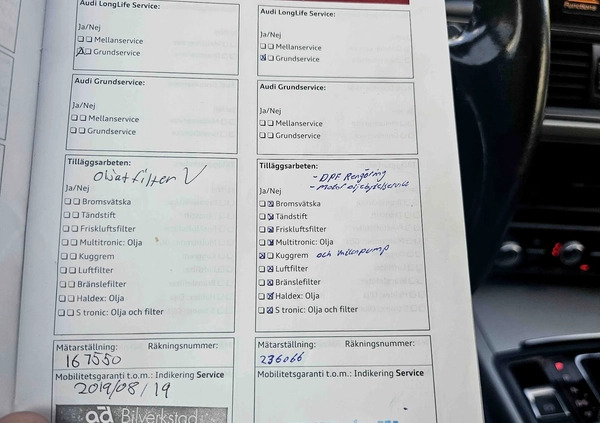 Audi LongLife Service:
Ja/Nej
Mellanservice
Grundservice
Audi Grundservice:
Ja/Nej
Mellanservice
Grundservice
Tilläggsarbeten:
Ja/Nej
Bromsvätska
Tändstift
Friskluftsfilter
Multitronic: Olja
Kuggrem
Luftfilter
Bränslefilter
Haldex: Olja
S tronic: Olja och filter
Mätarställning: Räkningsnummer:
167550
Mobilitetsgaranti t.o.m.: Indikering Service
2019/08/19
ad Bilverkstad
Audi LongLife Service:
Ja/Nej
Mellanservice
Grundservice
Audi Grundservice:
Ja/Nej
Mellanservice
Grundservice
Tilläggsarbeten:
- DPF Rengöring
Ja/Nej
Bromsvätska
Tändstift
Friskluftsfilter
Multitronic: Olja
Kuggrem och
Luftfilter
Bränslefilter
Haldex: Olja
S tronic: Olja och filter
Mätarställning: Räkningsnummer:
236066
Mobilitetsgaranti t.o.m.: Indikering Service